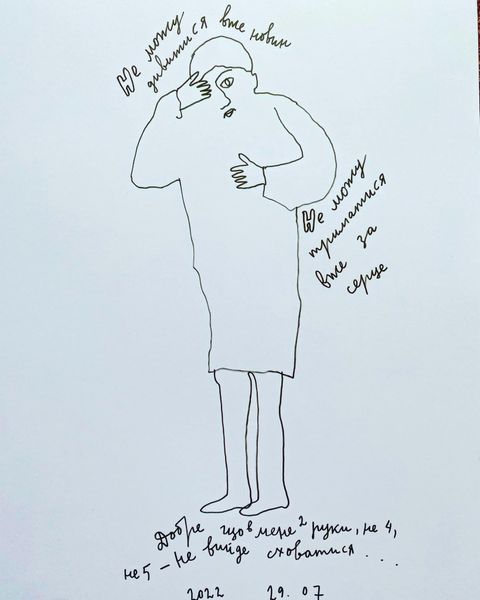 Не можу
дивитися вже новин
Не можу
триматися
вже за
серце
Добре що в мене 2 руки, не 4,
не 5 – не вийде сховатися...
2022 29.07